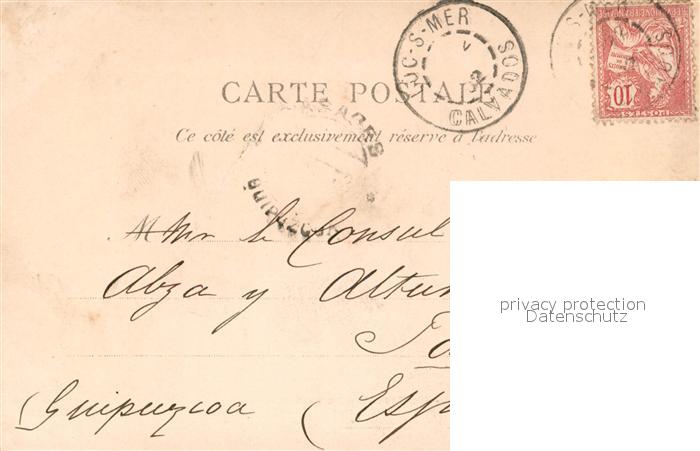 LUC-S-MER
CALVADOS
10
POSTES
CARTE POSTALE
Ce côté est exclusivement réservé à l'adresse
GUIPUZCOA
Mr le Consul
Abza y Altun
Guipuzcoa (Esp
privacy protection
Datenschutz